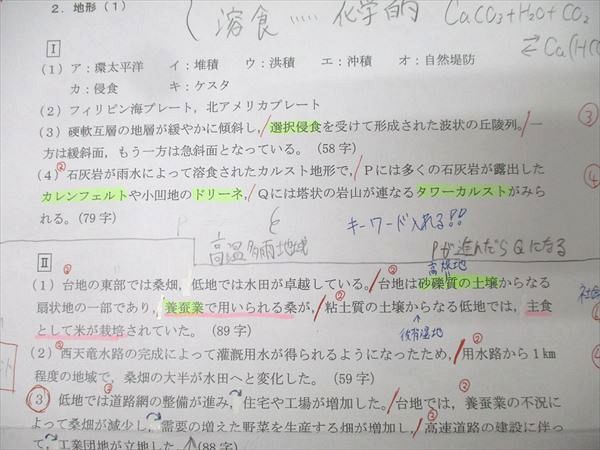 2. 地形（1）
溶食……化学的 CaCO3+H2O+CO2
⇄Ca(HCO
Ⅰ
（1）ア：環太平洋　イ：堆積　ウ：洪積　エ：沖積　オ：自然堤防
カ：侵食　キ：ケスタ
（2）フィリピン海プレート，北アメリカプレート
（3）硬軟互層の地層が緩やかに傾斜し，選択侵食を受けて形成された波状の丘陵列。一
方は緩斜面，もう一方は急斜面となっている。（58 字）
③
（4）石灰岩が雨水によって溶食されたカルスト地形で，Ｐには多くの石灰岩が露出した
②
④
カレンフェルトや小凹地のドリーネ，Ｑには塔状の岩山が連なるタワーカルストがみら
れる。（79 字）
キーワード入れる!!
高温多雨地域
Pが進んだらQになる
Ⅱ
高燥地
（1）台地の東部では桑畑，低地では水田が卓越している。台地は砂礫質の土壌からなる
扇状地の一部であり，養蚕業で用いられる桑が，粘土質の土壌からなる低地では，主食
として米が栽培されていた。（89 字）
後背湿地
（2）西天竜水路の完成によって灌漑用水が得られるようになったため，用水路から 1 km
程度の地域で，桑畑の大半が水田へと変化した。（59 字）
（3）低地では道路網の整備が進み，住宅や工場が増加した。台地では，養蚕業の不況に
よって桑畑が減少し，需要の増えた野菜を生産する畑が増加し，高速道路の建設に伴っ
て，工業団地が立地した。（88 字）